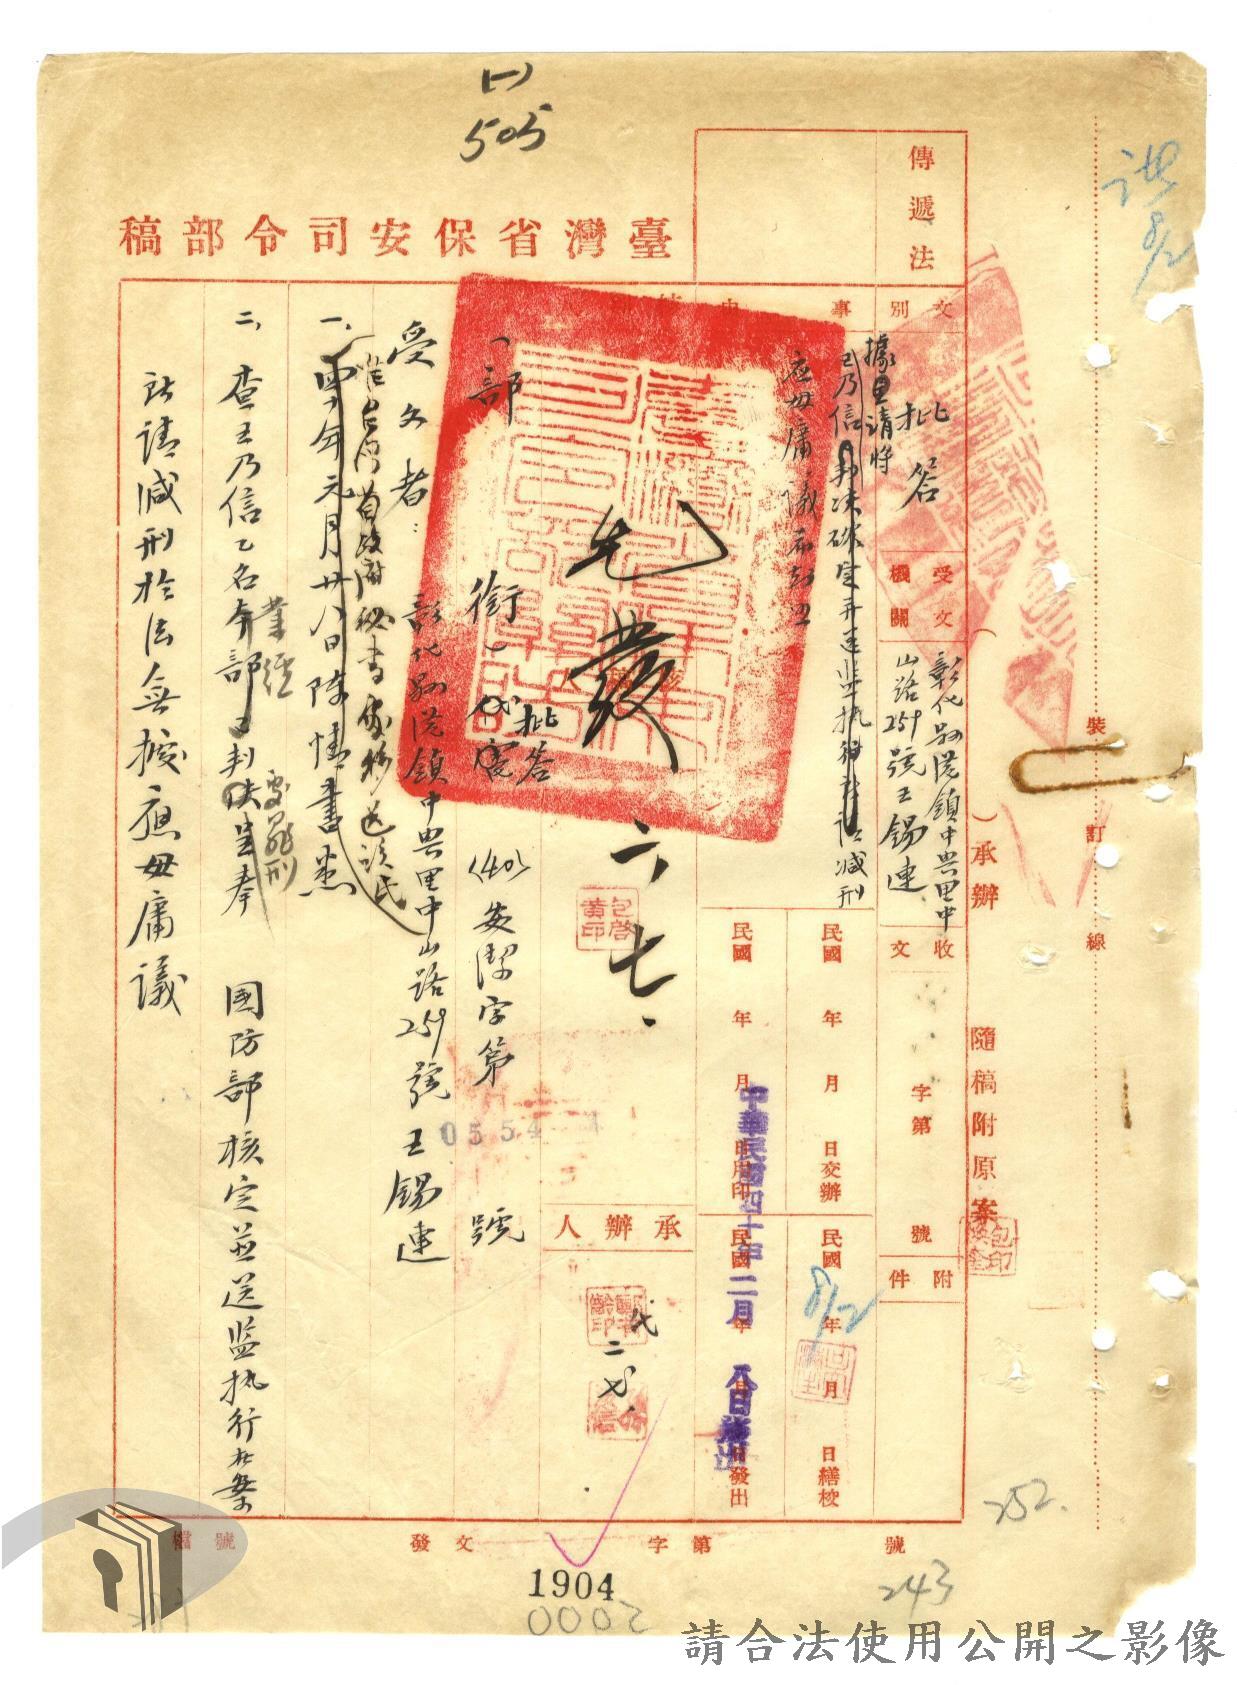 (一)
505
洪
8/2
臺灣省保安司令部稿
傳遞法
文別
批答
受文機關
彰化縣鹿港鎮中興里中
山路259號王錫連
收文
字第
號
附件
事由
據呈請將
王乃信判決確定并送監執行
請減刑
應毋庸議
先發
六、七、
民國 年 月 日交辦
民國 年 月 日繕校
8/2
民國 年 月 日用印
民國 年 月 日發出
中華民國四十年二月八日發出
包啓黃印
承辦人
代
二、七、
(部銜)代電
批答
(40)安潔字第 號
0554
受文者:彰化縣鹿港鎮中興里中山路259號王錫連
一、准台灣省政府秘書處移送該氏
四十年元月廿八日陳情書悉
二、查王乃信乙名本部已判決呈奉 國防部核定並送監執行在案
業經
處罪刑
所請減刑於法無據應毋庸議
承辦
隨稿附原案
裝
訂
線
252.
檔號
發文
字第
號
243
1904
0002
請合法使用公開之影像